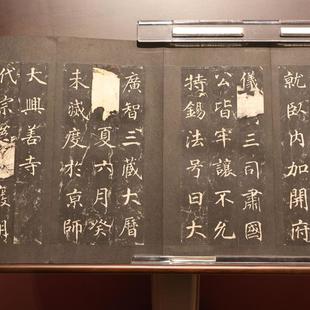 就臥内加開府
儀三司肅國
公皆牢讓不允
特錫法号曰大
廣智三藏大曆
夏六月癸
未滅度於京師
大興善寺
代宗